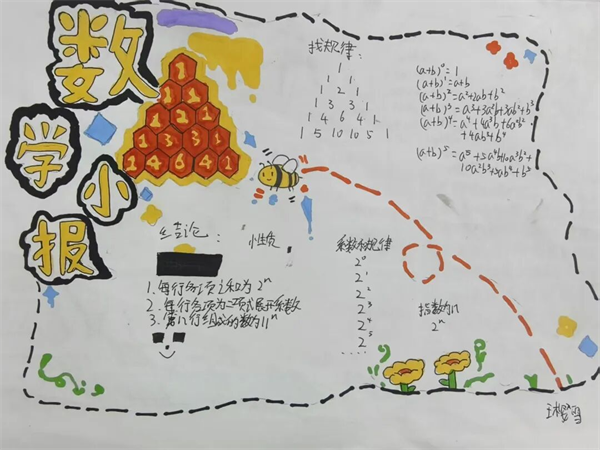 数
学
小
报
1
1 1
1 2 1
1 3 3 1
1 4 6 4 1
找规律:
1
1 1
1 2 1
1 3 3 1
1 4 6 4 1
1 5 10 10 5 1
(a+b)⁰=1
(a+b)¹=a+b
(a+b)²=a²+2ab+b²
(a+b)³=a³+3a²b+3ab²+b³
(a+b)⁴=a⁴+4a³b+6a²b²
+4ab³+b⁴
(a+b)⁵=a⁵+5a⁴b+10a³b²+
10a²b³+5ab⁴+b⁵
结论:
1.每行各项之和为2ⁿ
2.每行各项为二项式展开系数
3.第n行组成的数为11ⁿ
系数和规律
2⁰
2¹
2²
2³
2⁴
2⁵
......
指数为n
2ⁿ